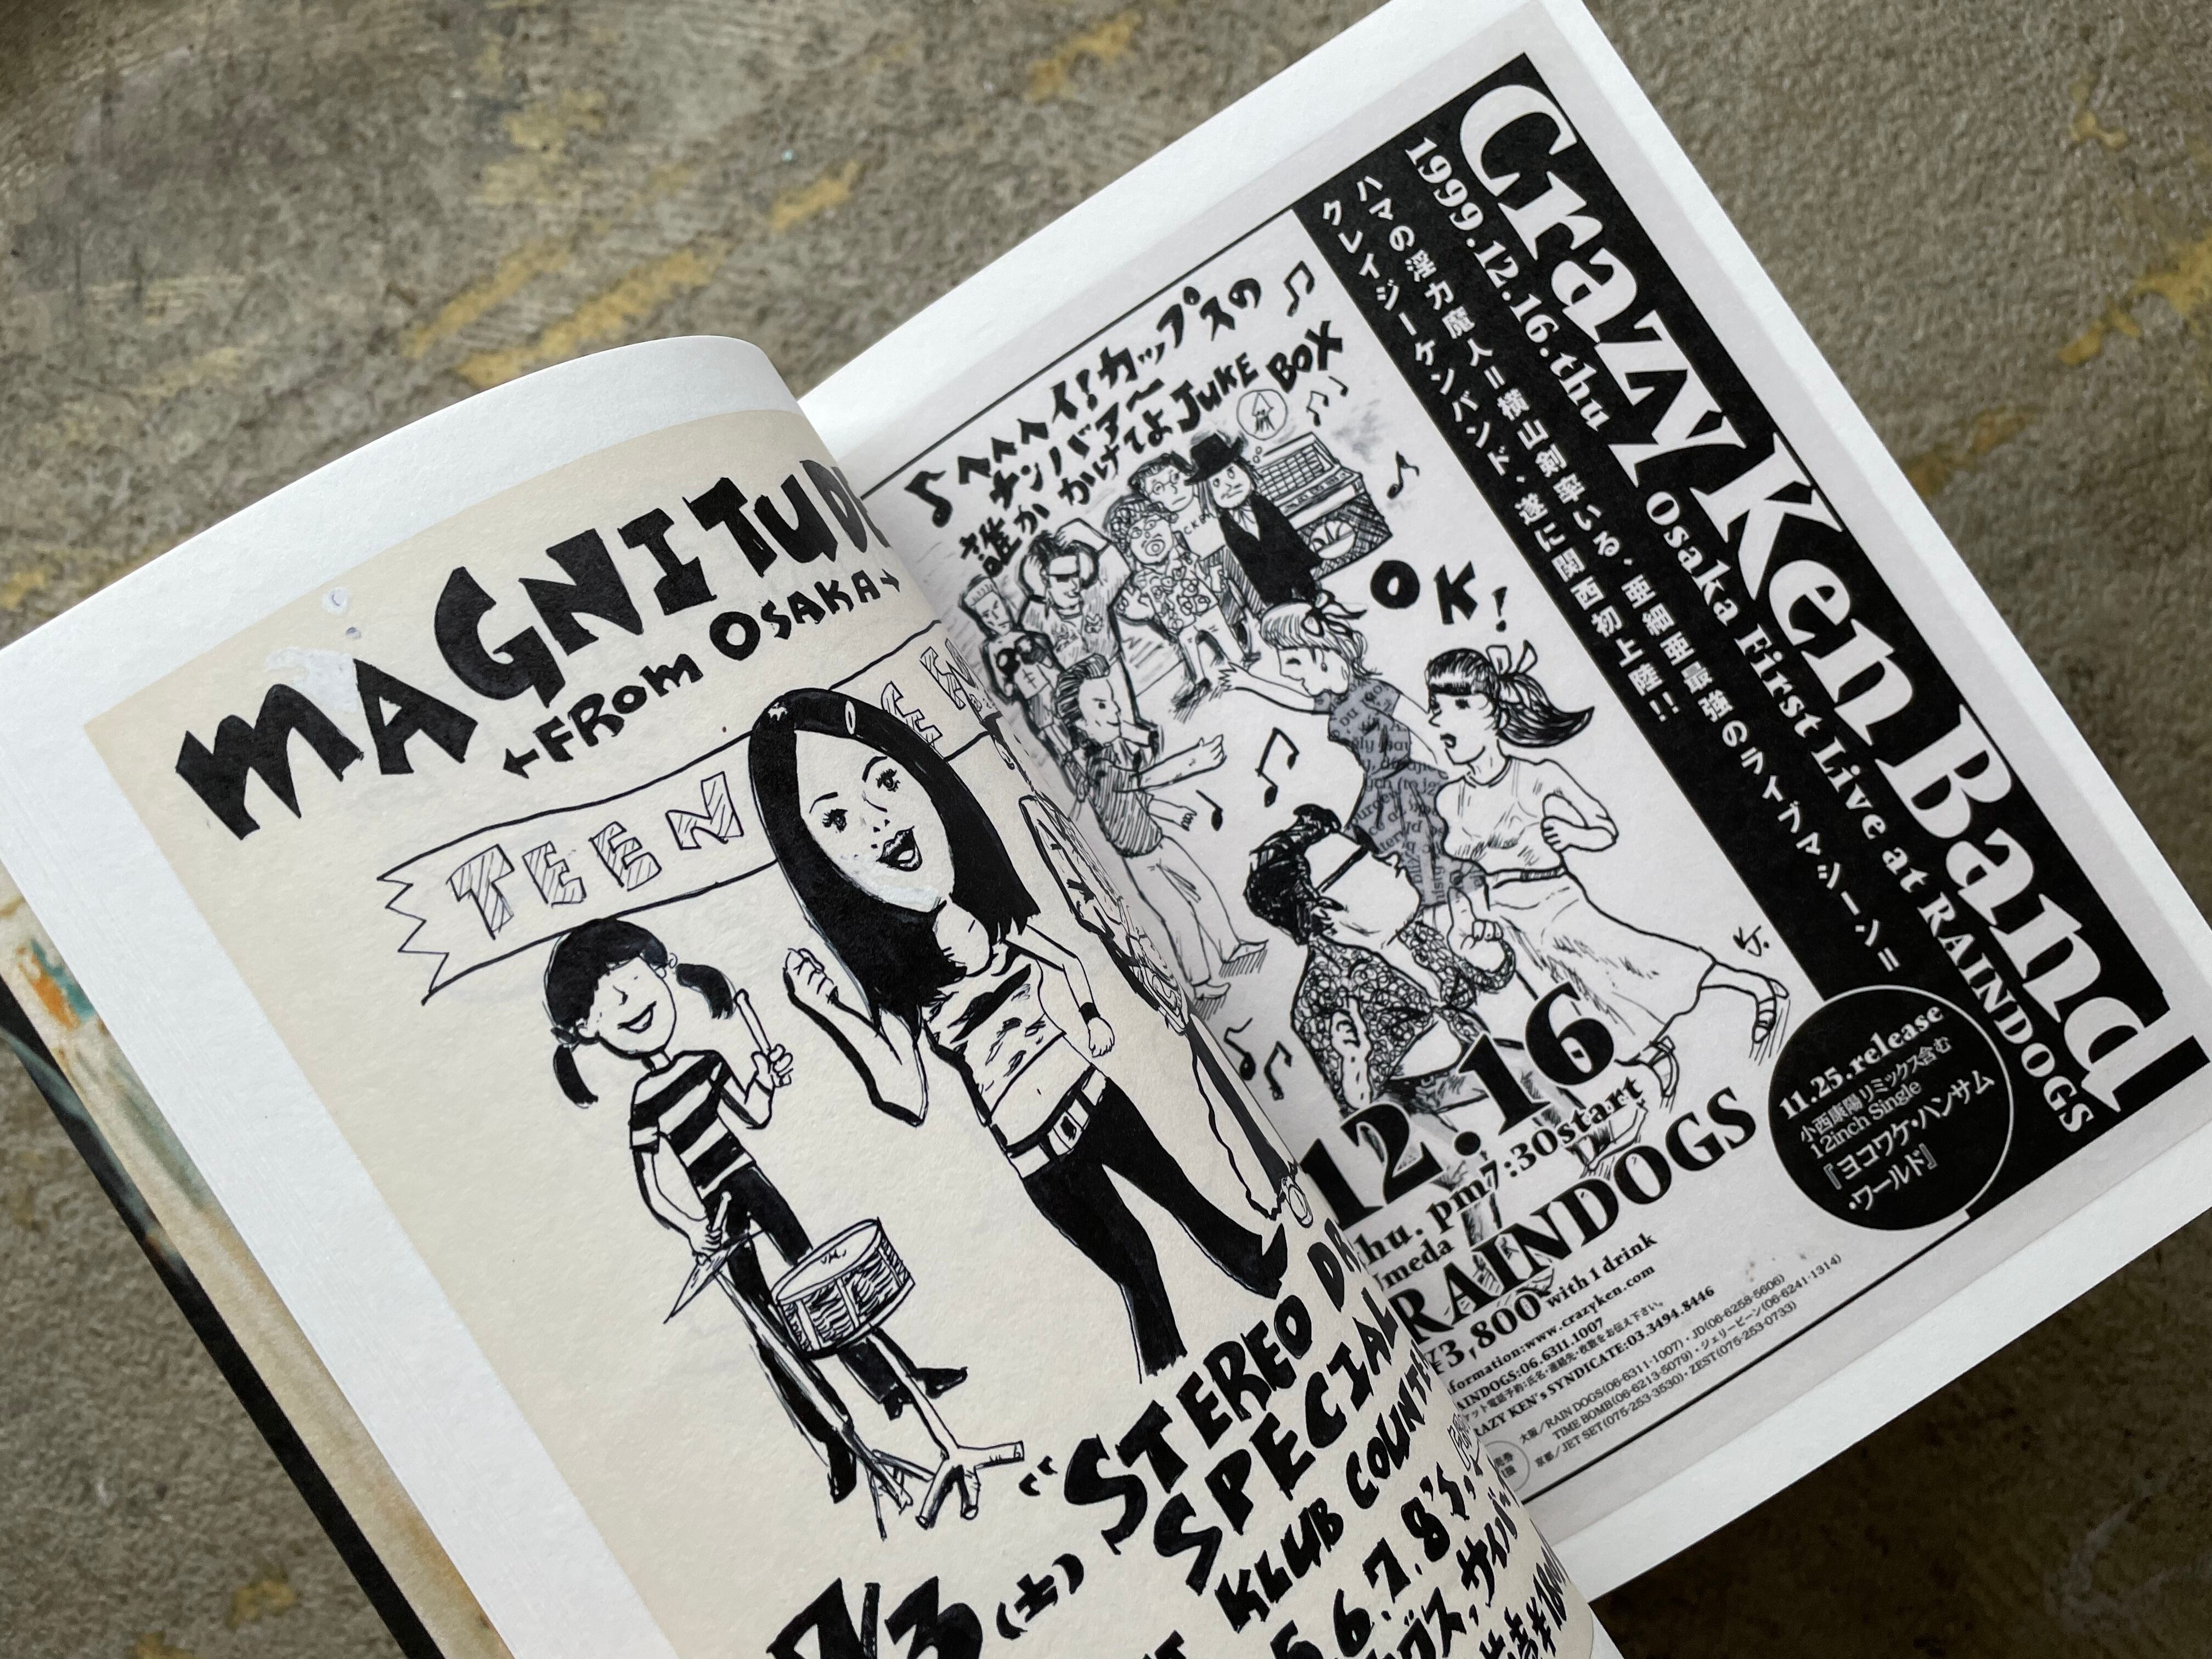 MAGNITUD
←FROM OSAKA→
TEEN
"STEREO
SPECIAL
KLUB COUNT
5.6.7.8's,
7/3(土)
Crazy Ken Band
1999.12.16.thu Osaka First Live at RAINDOGS
ハマの淫力魔人=横山剣率いる、亜細亜最強のライブマシーン=
クレイジーケンバンド、遂に関西初上陸!!
♪へへヘイ!カップスの
チンバァ〜
誰か かけてよ JUKE BOX
OK!
K.J.
12.16
hu. pm7:30start
Umeda
RAINDOGS
¥3,800 with 1 drink
formation:www.crazyken.com
AINDOGS:06.6311.1007
ケット電話予約:氏名・連絡先・枚数をお伝え下さい。
RAZY KEN's SYNDICATE:03.3494.8446
大阪/RAIN DOGS(06-6311-1007)・JD(06-6258-5606)
TIME BOMB(06-6213-5079)・ジェリービーン(06-6241-1314)
京都/JET SET(075-253-3530)・ZEST(075-253-0733)
11.25.release
小西康陽リミックス含む
12inch Single
『ヨコワケ・ハンサム
・ワールド』